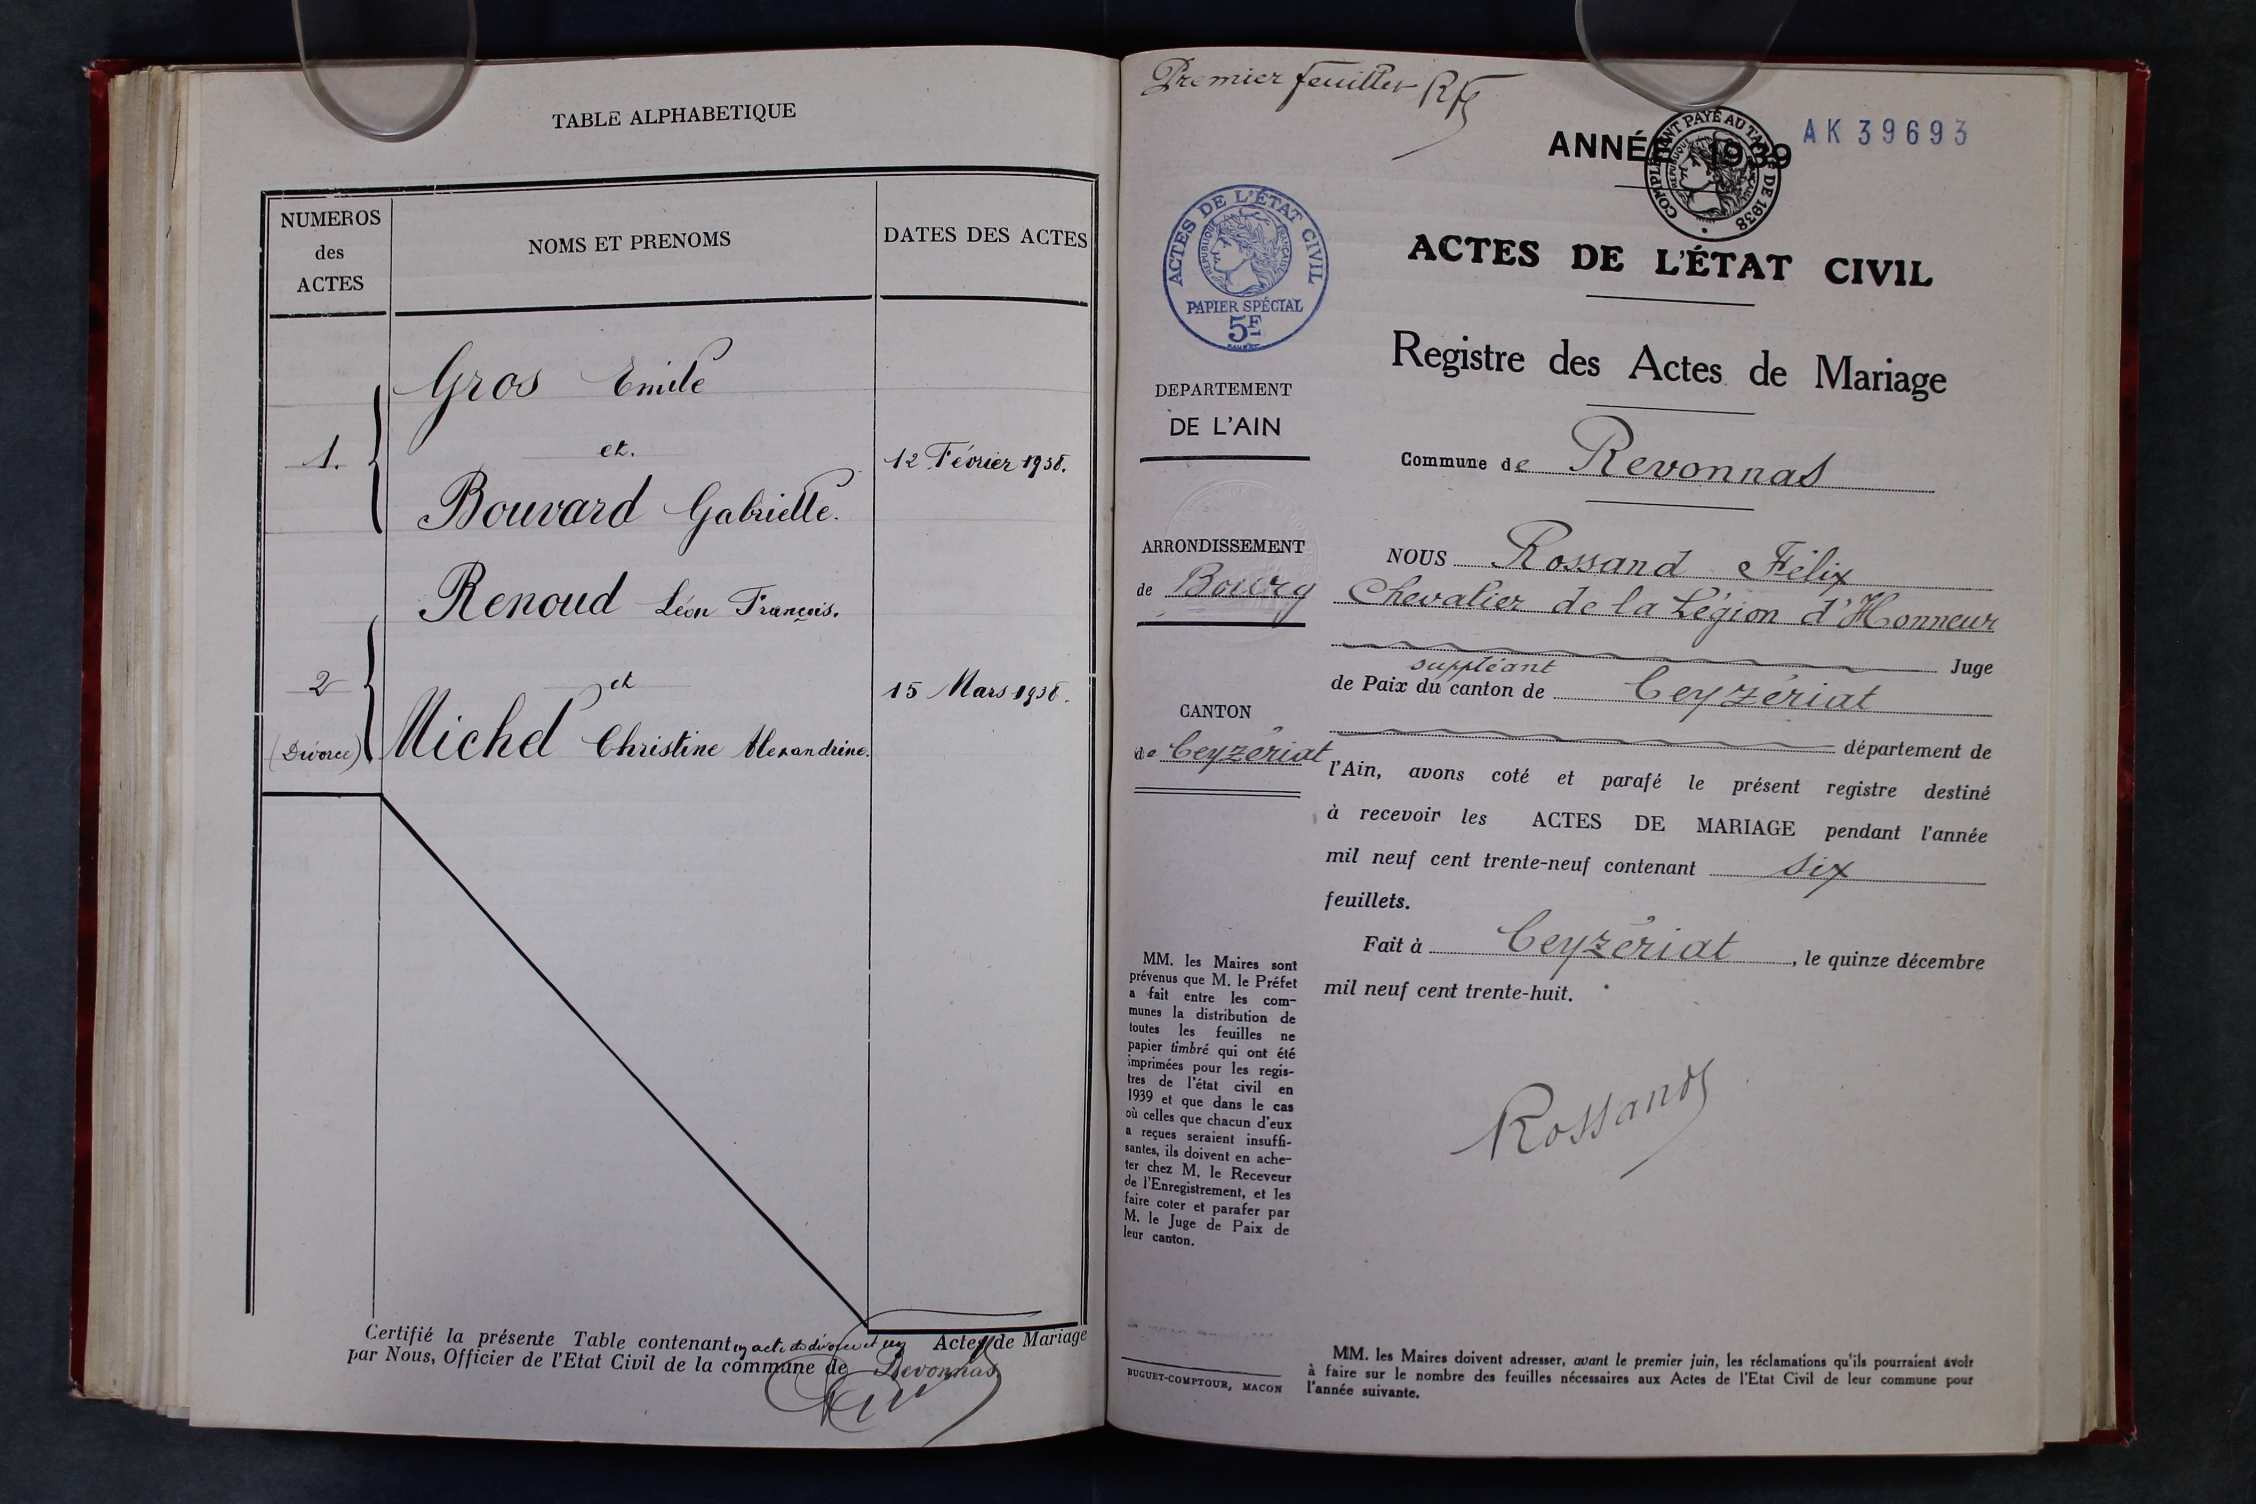 TABLE ALPHABETIQUE
NUMEROS
des
ACTES
NOMS ET PRENOMS
DATES DES ACTES
Gros Emile
1.
et.
12 Février 1938.
Bouvard Gabrielle.
Renoud Léon François.
2
et
15 Mars 1938.
(Divorce)
Michel Christine Alexandrine.
Certifié la présente Table contenant un acte de divorce et un Actes de Mariage
par Nous, Officier de l'Etat Civil de la commune de Revonnas
Premier feuillet
ANNÉE 1939
AK 39693
COMPLÉMENT PAYÉ AU TARIF DE 1938
RÉPUBLIQUE FRANÇAISE
ACTES DE L'ÉTAT CIVIL
RÉPUBLIQUE FRANÇAISE
PAPIER SPÉCIAL
5F
ACTES DE L'ÉTAT CIVIL
Registre des Actes de Mariage
DEPARTEMENT
DE L'AIN
Commune de Revonnas
ARRONDISSEMENT
de Bourg
CANTON
de Ceyzériat
NOUS Rossand Félix
Chevalier de la Légion d'Honneur
Juge
suppléant
de Paix du canton de Ceyzériat
département de
l'Ain, avons coté et parafé le présent registre destiné
à recevoir les ACTES DE MARIAGE pendant l'année
mil neuf cent trente-neuf contenant six
feuillets.
Fait à Ceyzériat, le quinze décembre
mil neuf cent trente-huit.
Rossand
MM. les Maires sont
prévenus que M. le Préfet
a fait entre les com-
munes la distribution de
toutes les feuilles ne
papier timbré qui ont été
imprimées pour les regis-
tres de l'état civil en
1939 et que dans le cas
où celles que chacun d'eux
a reçues seraient insuffi-
santes, ils doivent en ache-
ter chez M. le Receveur
de l'Enregistrement, et les
faire coter et parafer par
M. le Juge de Paix de
leur canton.
BUGUET-COMPTOUR, MACON
MM. les Maires doivent adresser, avant le premier juin, les réclamations qu'ils pourraient avoir
à faire sur le nombre des feuilles nécessaires aux Actes de l'Etat Civil de leur commune pour
l'année suivante.